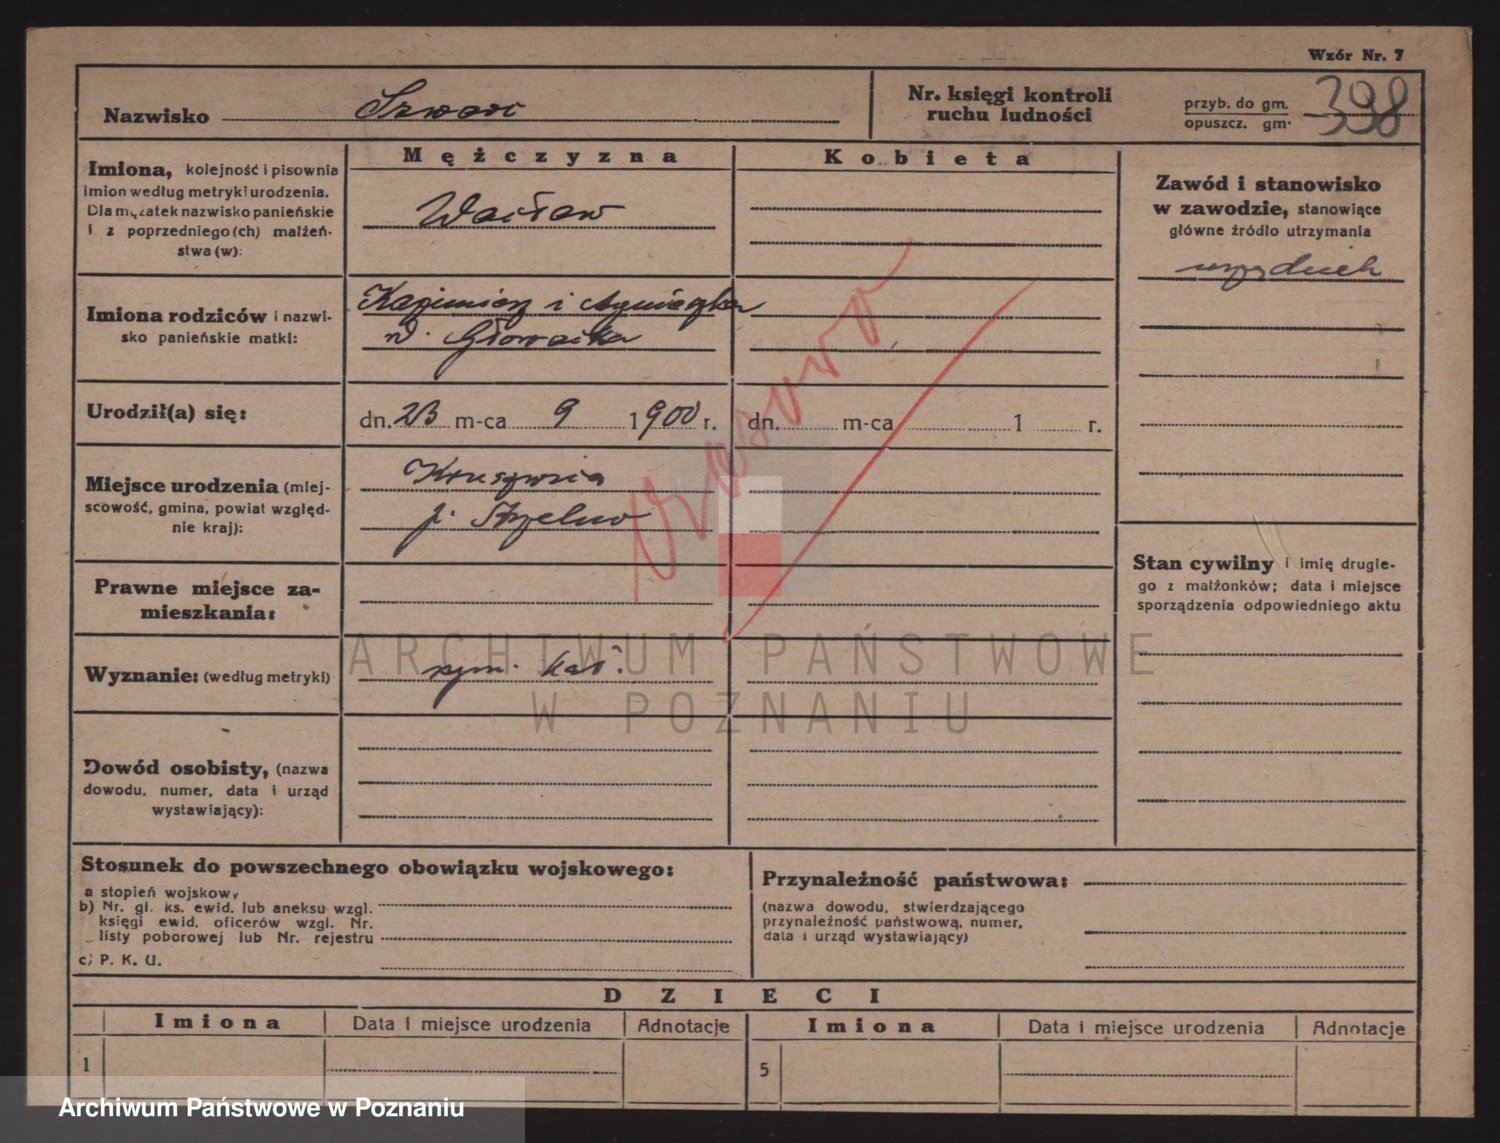 Wzór Nr. 7
Nazwisko
Nr. księgi kontroli
ruchu ludności
przyb. do gm.
opuszcz. gm.
398
Imiona, kolejność i pisownia
imion według metryki urodzenia.
Dla mężatek nazwisko panieńskie
i z poprzedniego(ch) małżeń-
stwa(w):
Mężczyzna
Wacław
Kobieta
Zawód i stanowisko
w zawodzie, stanowiące
główne źródło utrzymania
urzędnik
Imiona rodziców i nazwi-
sko panieńskie matki:
Kazimierz i Agnieszka
d. Głowacka
Urodził(a) się:
dn. 23 m-ca 9 1900 r.
dn. m-ca 1 r.
Miejsce urodzenia (miej-
scowość, gmina, powiat względ-
nie kraj):
Kruszwica
p. Strzelno
Prawne miejsce za-
mieszkania:
Stan cywilny i imię drugie-
go z małżonków; data i miejsce
sporządzenia odpowiedniego aktu
Wyznanie: (według metryki)
rzym. kat.
ARCHIWUM PAŃSTWOWE
W POZNANIU
Dowód osobisty, (nazwa
dowodu, numer, data i urząd
wystawiający):
Stosunek do powszechnego obowiązku wojskowego:
a stopień wojskowy
b) Nr. gl. ks. ewid. lub aneksu wzgl.
księgi ewid. oficerów wzgl. Nr.
listy poborowej lub Nr. rejestru
c) P. K. U.
Przynależność państwowa:
(nazwa dowodu, stwierdzającego
przynależność państwową, numer,
data i urząd wystawiający)
DZIECI
Imiona Data i miejsce urodzenia Adnotacje Imiona Data i miejsce urodzenia Adnotacje
1 5
Archiwum Państwowe w Poznaniu